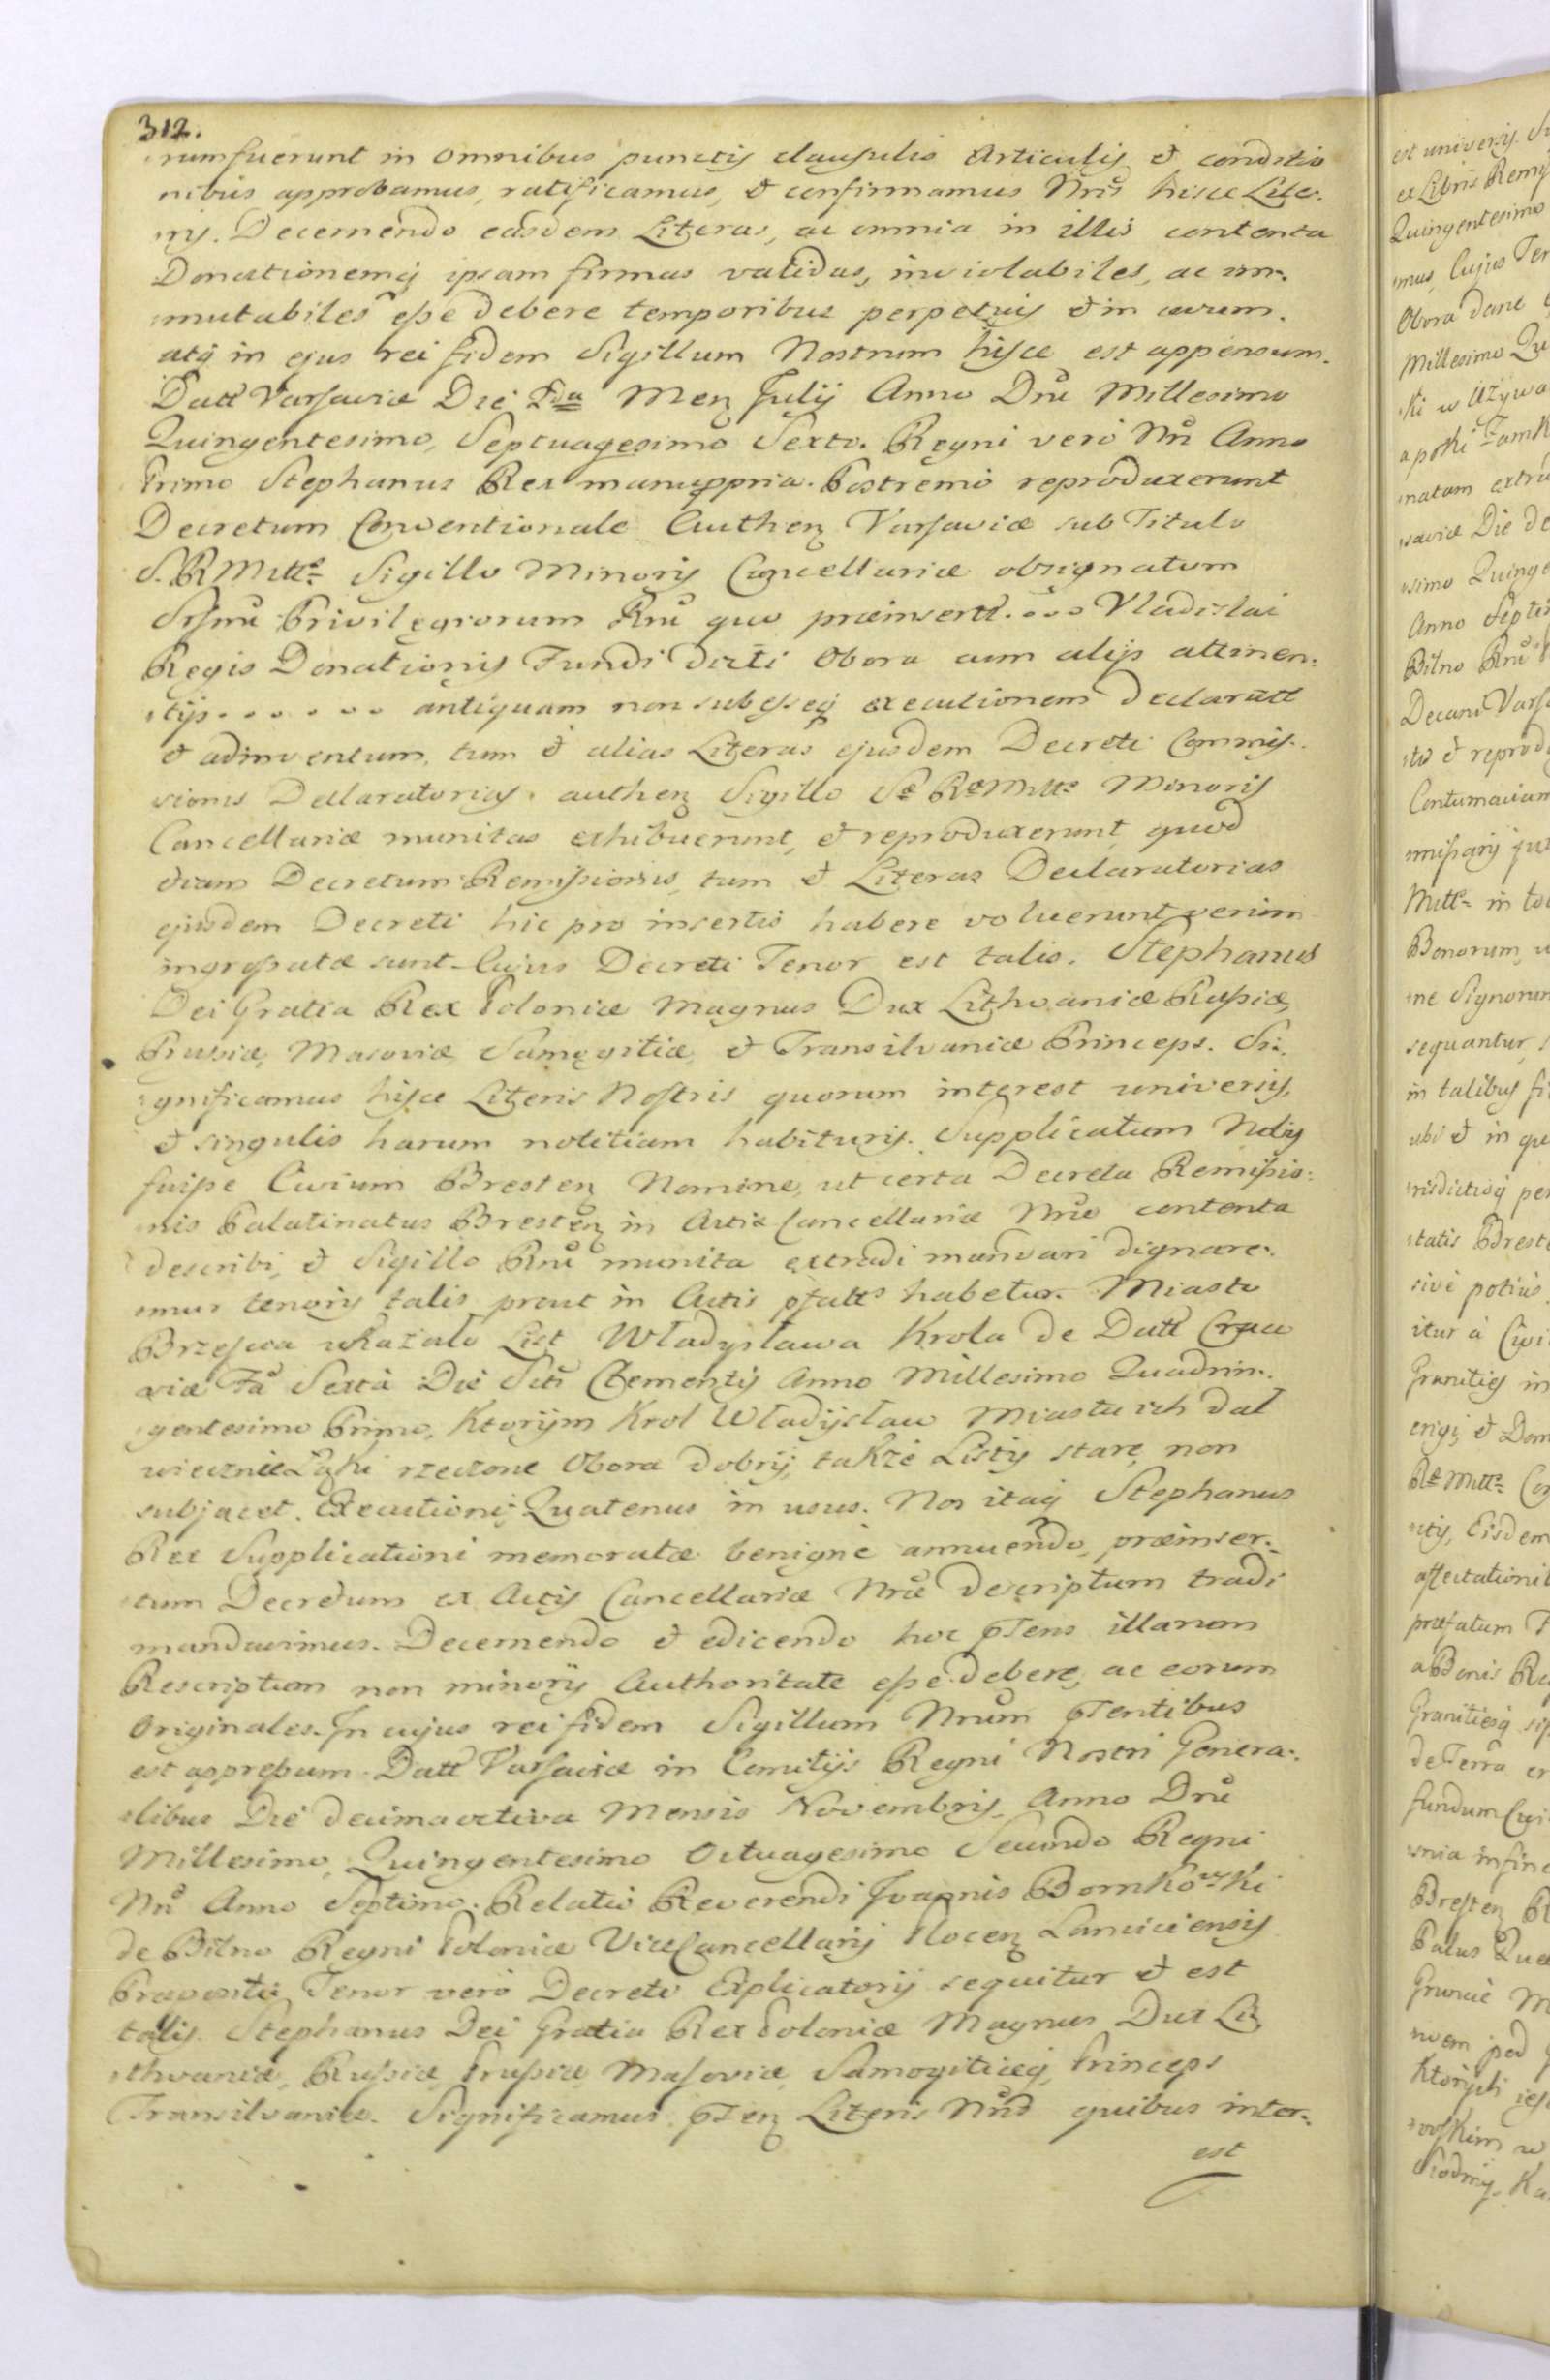 312.
rumfuerunt in omnibus punctis clausulis Articulis et conditio
nibus approbamus, ratificamus, et confirmamus Nris hisce Lite:
ris. Decernendo easdem Literas, ac omnia in illis contenta
Donationemq ipsam firmas validas, inviolabiles, ac im:
mutabiles esse debere temporibus perpetuis et in aevum.
atq in ejus rei fidem Sigillum Nostrum hisce est appensum.
Datt Varsaviæ Die 2da Men Julij Anno Dni Millesimo
Quingentesimo, Septuagesimo Sexto. Regni vero Nri Anno
Primo Stephanus Rex manuppria. Postremò reproduxerunt
Decretum Conventionale Authen Varsaviæ sub Titulo
S. R Mttis Sigillo Minoris Cancellariæ obsignatum
Privilegiorum quo præinsertt. . . . Vladislai
Regis Donationis Fundi dicti Obora cum alijs attinen:
tijs. . . . . . . antiquam non subesseq executionem declaratt
et adinventum, tum et alias Literas ejusdem Decreti Commis:
sionis Declaratorias authen Sigillo Sæ Ræ Mttis Minoris
Cancellariæ munitas exhibuerunt, et reproduxerunt, quod
Decretum Remissionis, tum et Literas Declaratorias
ejusdem Decreti hic pro insertis habere voluerunt verum
ingrossatæ sunt. Cujus Decreti Tenor est talis. Stephanus
Dei Gratia Rex Poloniæ Magnus Dux Lithvaniæ Russiæ,
Prussiæ, Masoviæ Samogitiæ, et Transilvaniæ Princeps. Si:
gnificamus hisce Literis Nostris quorum interest universis,
et singulis harum notitiam habituris. Supplicatum Nobis
fuisse Civium Bresten Nomine, ut certa Decreta Remissio:
nis Palatinatus Bresten in Actis Cancellariæ Nræ contenta
describi, et Sigillo Rni munita extradi mandari dignare:
mur tenoris talis prout in Actis habetur. Miasto
Brzescia ukazało List Władysława Krola de Datt Craco
viæ Fa Sexta Die Sti Clementis Anno Millesimo Quadrin:
gentesimo Primo, Ktorym Krol Władysław Miastu ich dał
wiecznie Łąki rzeczone Obora dobry, takze Listy stare, non
subjacet. Executionis Quatenus in usus. Nos itaq Stephanus
Rex Supplicationi memoratæ benignè annuendo, præinser:
tum Decretum ex Actis Cancellariæ Nræ descriptum tradi
mandavimus. Decernendo et edicendo hoc pTens illarum
Rescriptum non minoris Authoritate esse debere, ac eorum
Originales. In cujus rei fidem Sigillum Nrum pTentibus
est appressum. Datt Varsaviæ in Comitijs Regni Nostri Genera:
libus Die decima octava Mensis Novembris, Anno Dni
Millesimo, Quingentesimo Octuagesimo Secundo Regni
Nri Anno Septimo. Relatio Reverendi Joannis Borukowski
de Bilno Regni Poloniæ ViceCancellarij Plocen Lanciciensis
Præpositi, Tenor verò Decreti Explicatorij sequitur et est
talis. Stephanus Dei Gratia Rex Poloniæ Magnus Dux Li
thvaniæ, Russiæ, Prussiæ, Masoviæ, Samogitiæq, Princeps
Transilvaniæ. Significamus pTen Literis Nris quibus inter:
est
est universis
ex Libris
Quingentesimo
mus, Cujus Ten
Obora dane
Millesimo Qu
natam extra
saviæ Die de
simo Quinge
Anno Septi
Bilno Rni
Decani Vars
Contumaciam
Mttis in to
Bonorum
ne Signorum
sequantur,
in talibus fi
ubi et in qu
risdictioq per
tatis Brest
sive potius
itur à Civi
Granities in
erigi, et Dom
Ræ Mttis Co
Eisdem
affectationi
præfatum
a Bonis Re
de Terra
fundum Civi
Bresten
Palus Quæ